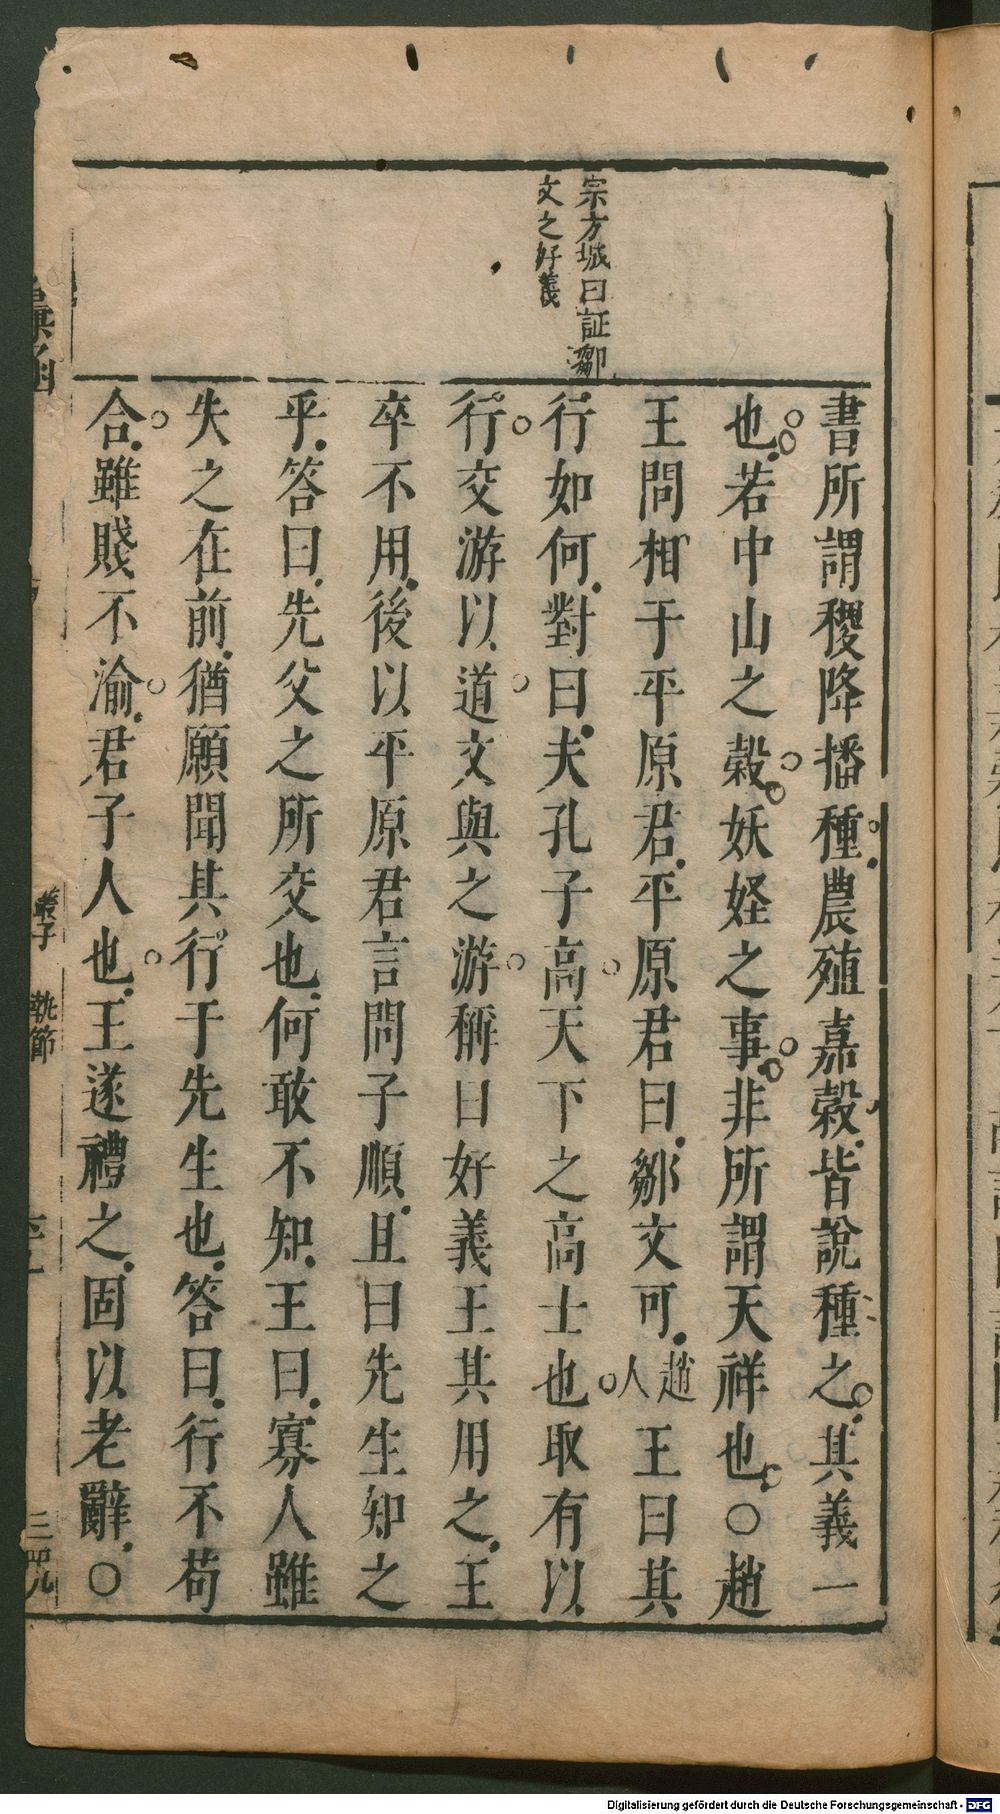 宗方城曰証鄒
文之好義
書所謂稷降播種農殖嘉穀皆說種之其義一
也若中山之穀妖婬之事非所謂天祥也○趙
王問相于平原君平原君曰鄒文可趙人王曰其
行如何對曰夫孔子高天下之高士也取有以
行交游以道文與之游稱曰好義王其用之王
卒不用後以平原君言問子順且曰先生知之
乎答曰先父之所交也何敢不知王曰寡人雖
失之在前猶願聞其行于先生也答曰行不苟
合雖賤不渝君子人也王遂禮之固以老辭○
叢子 執節
Digitalisierung gefördert durch die Deutsche Forschungsgemeinschaft - DFG